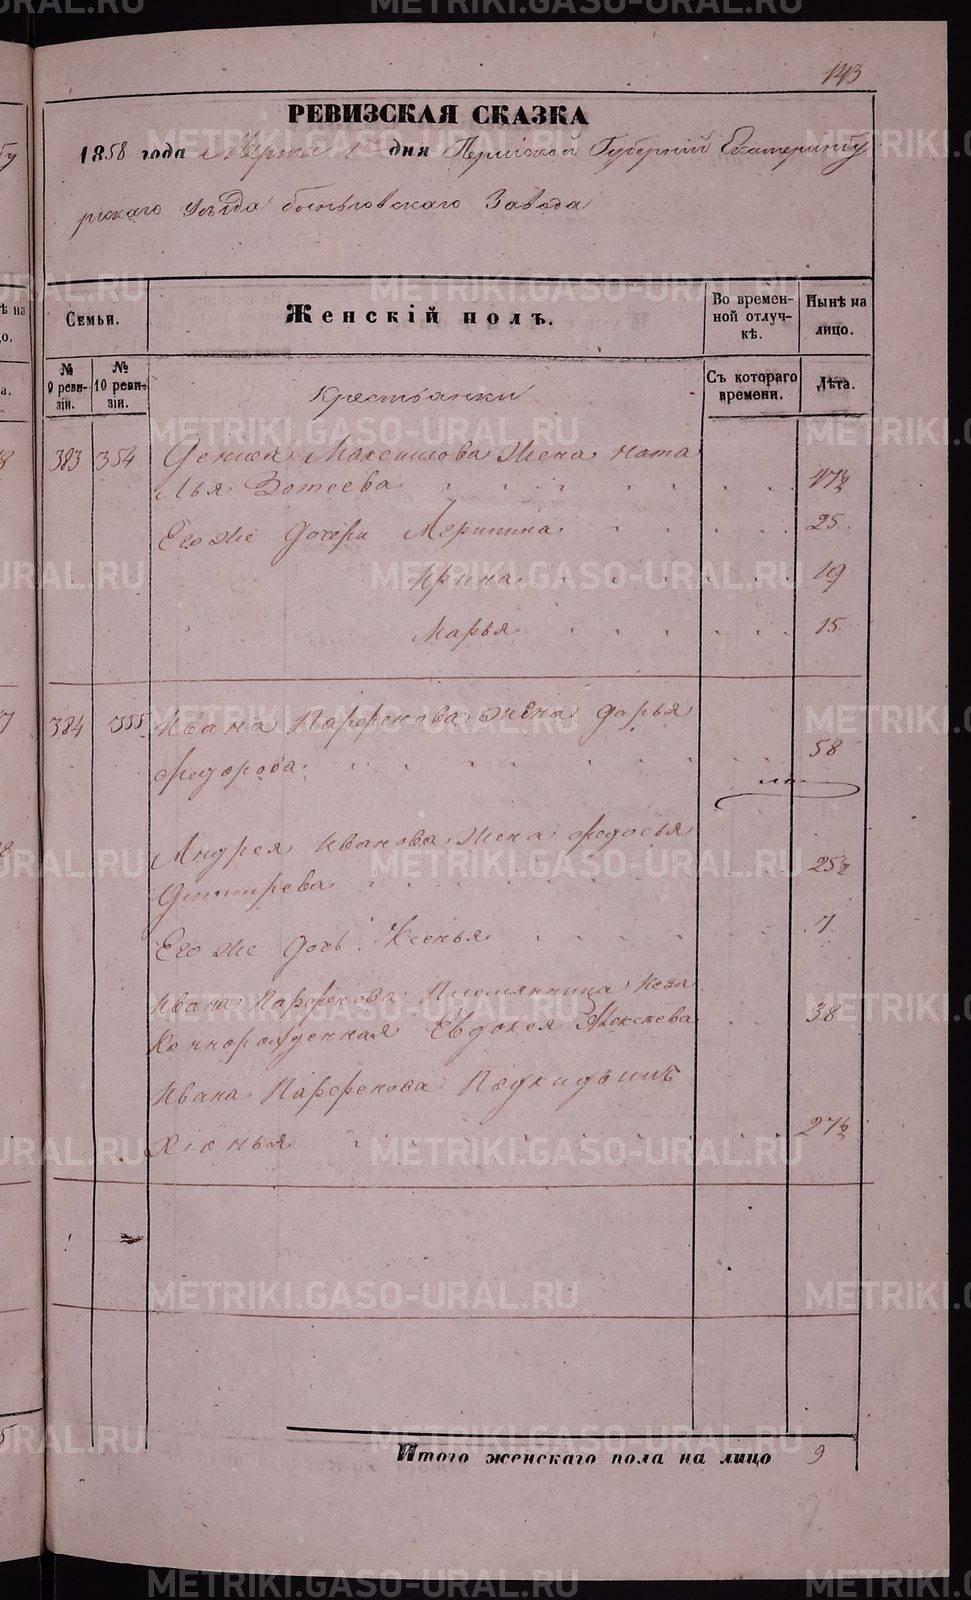 143
РЕВИЗСКАЯ СКАЗКА
1858 года Марта 1 дня Пермской Губерніи Екатеринбу
ргскаго Уезда Завода
Семьи.
Женскій полъ.
Во времен-
ной отлуч-
кѣ.
Нынѣ на
лицо.
№
9 реви-
зіи.
№
10 реви-
зіи.
Съ котораго
времени.
Лѣта.
Крестьянки
383 354 Максимова жена Ната
лья Зотеева 47½
Его же дочери 25
Ирина 19
Марья 15
384 355 Ивана Парфенова жена дарья
федорова 58
Андрея Иванова жена федосья
Дмитрева 25½
Его же дочь Ксенья 7
Ивана Парфенова Племянница Неза
коннорожденная Евдокея 38
Ивана Парфенова Подкидышъ
Хіонья 27½
Итого женскаго пола на лицо 9
METRIKI.GASO-URAL.RU